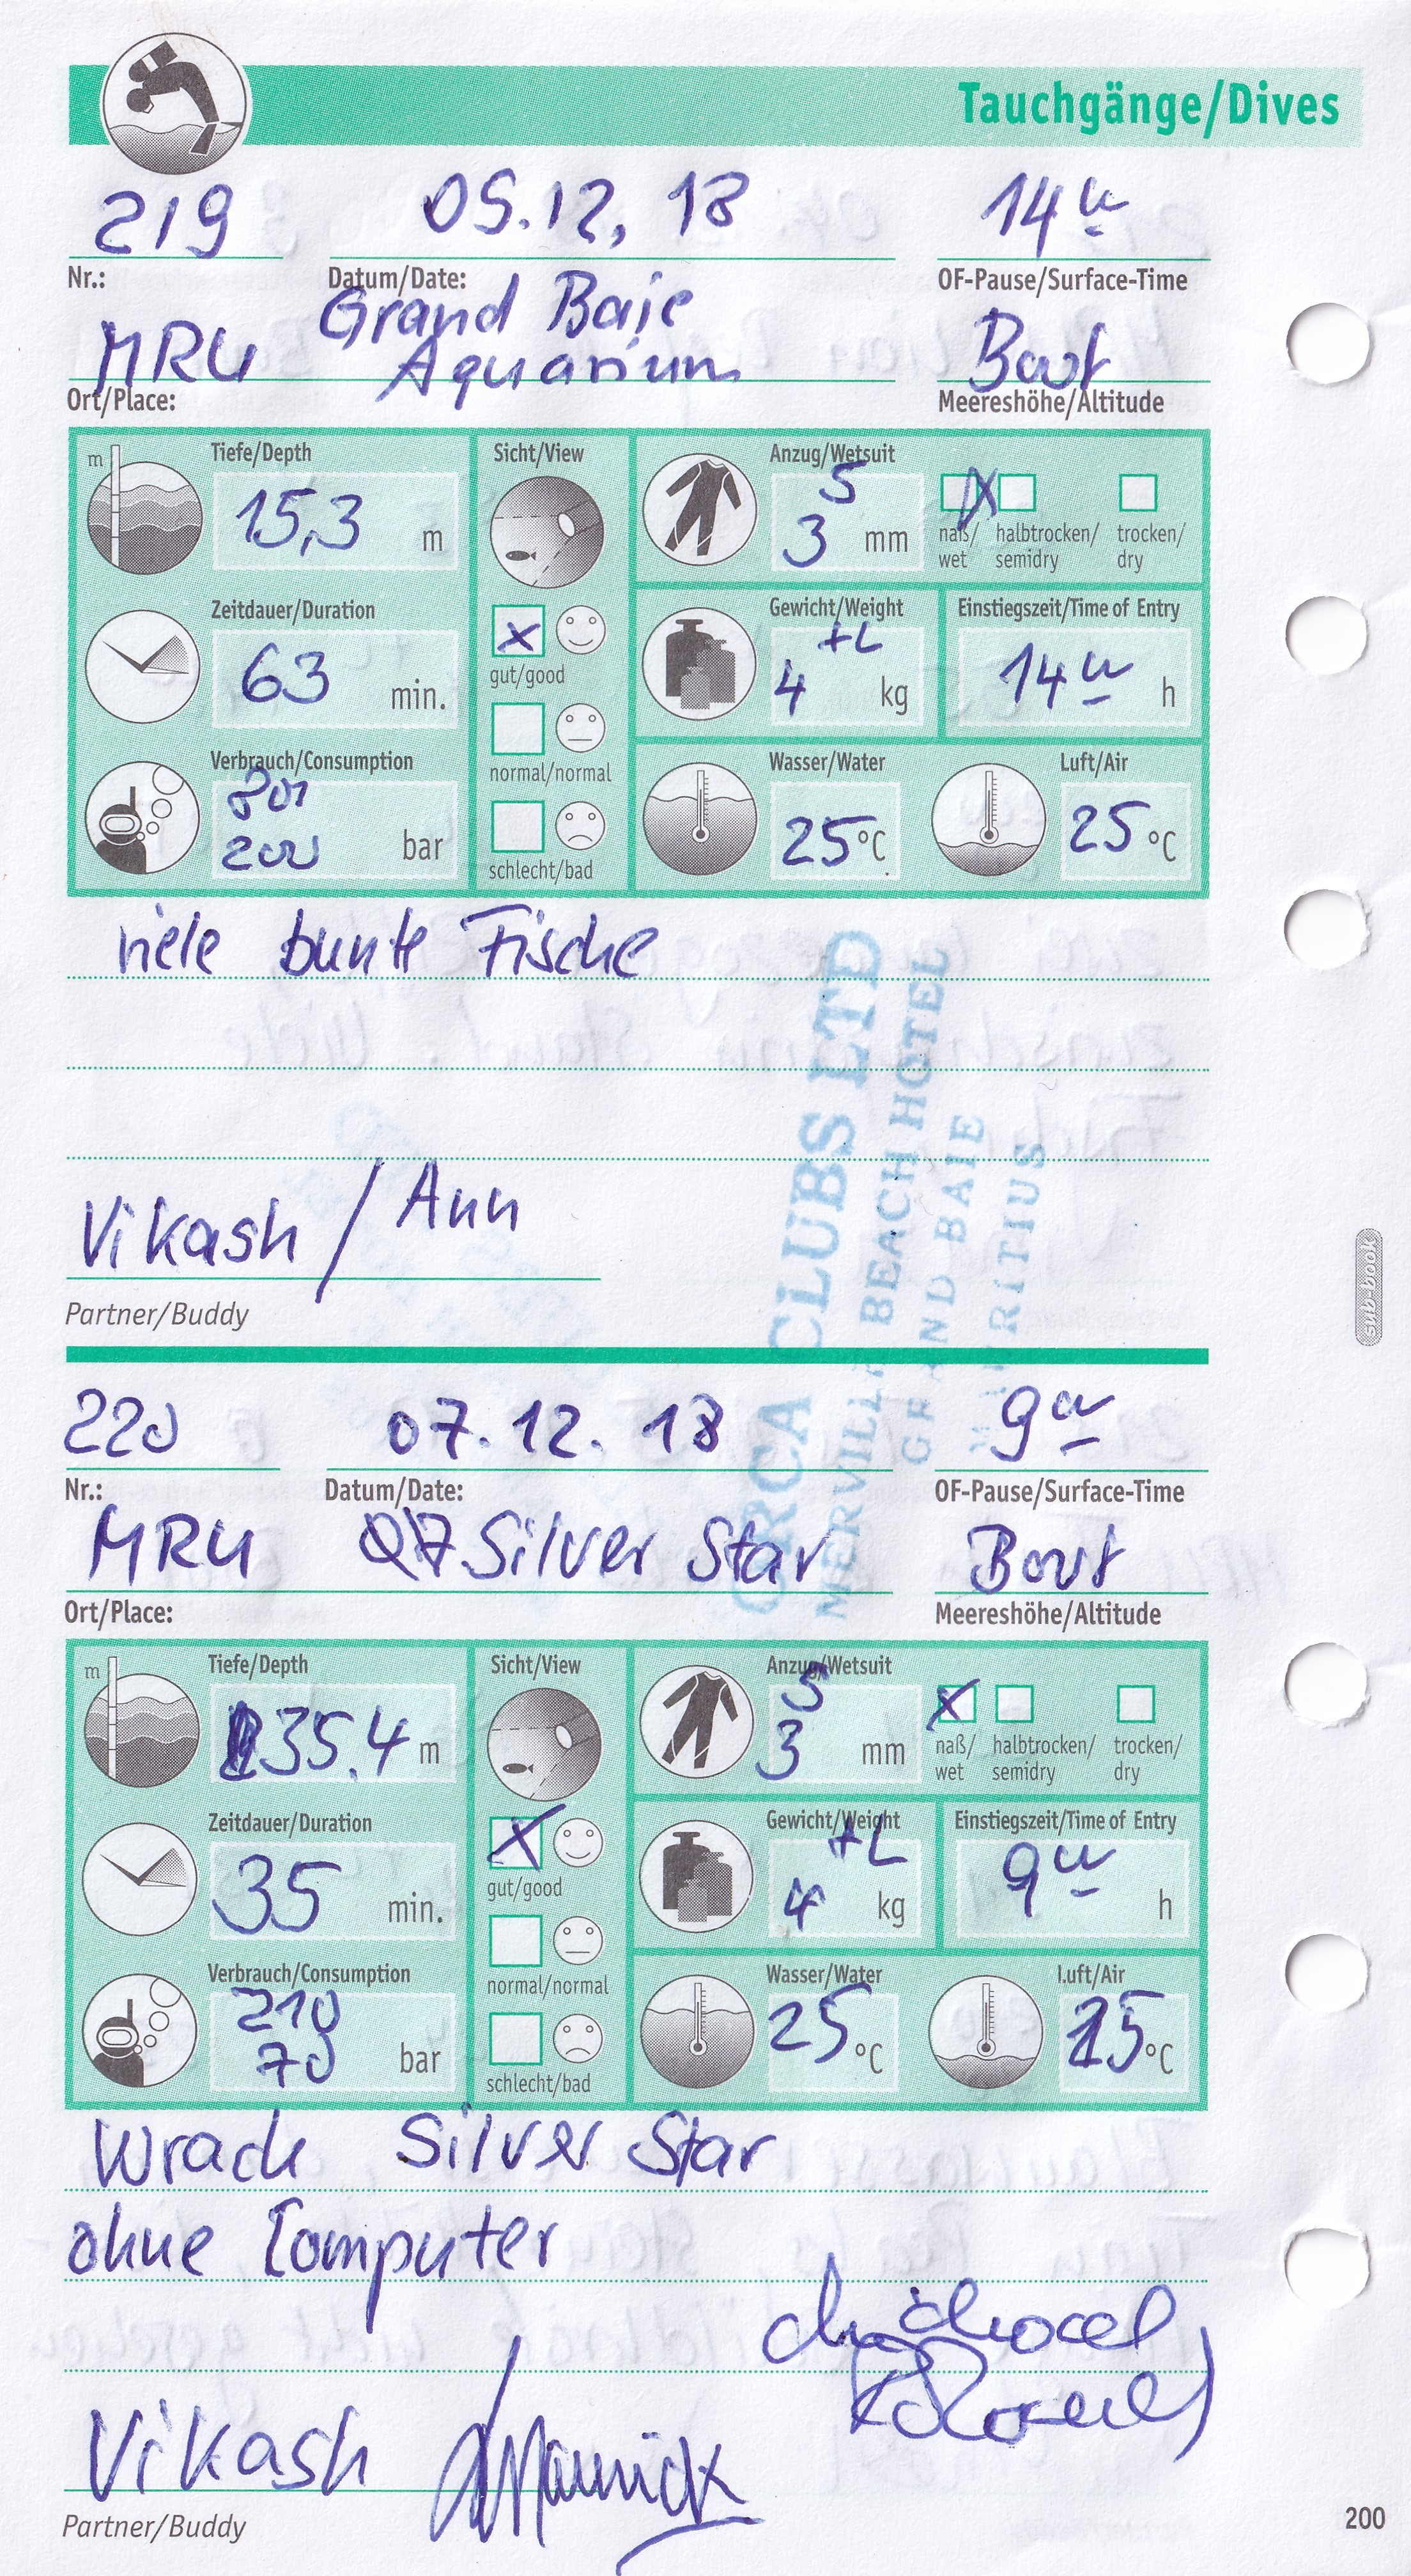 Tauchgänge/Dives
219 05.12, 18 14 u
Nr.: Datum/Date: OF-Pause/Surface-Time
Grand Baie
MRU Aquarium Boot
Ort/Place: Meereshöhe/Altitude
m Tiefe/Depth Sicht/View Anzug/Wetsuit
5
15,3 m 3 mm
naß/ halbtrocken/ trocken/
wet semidry dry
Zeitdauer/Duration Gewicht/Weight Einstiegszeit/Time of Entry
+L
x
63 min. 4 kg 14 u h
gut/good
normal/normal
Verbrauch/Consumption Wasser/Water Luft/Air
200 bar 25 °C 25 °C
schlecht/bad
viele bunte Fische
Vikash / Ann
Partner/Buddy
ORCA CLUBS LTD
MERVILLE BEACH HOTEL
GRAND BAIE
MAURITIUS
sub-book
220 07.12.18 9 u
Nr.: Datum/Date: OF-Pause/Surface-Time
MRU Silver Star Boot
Ort/Place: Meereshöhe/Altitude
m Tiefe/Depth Sicht/View Anzug/Wetsuit
5
35,4 m 3 mm x
naß/ halbtrocken/ trocken/
wet semidry dry
Zeitdauer/Duration Gewicht/Weight Einstiegszeit/Time of Entry
+L
x
35 min. 4 kg 9 u h
gut/good
normal/normal
Verbrauch/Consumption Wasser/Water Luft/Air
210
70 bar 25 °C 25 °C
schlecht/bad
Wrack Silver Star
ohne Computer
Vikash
Partner/Buddy
200